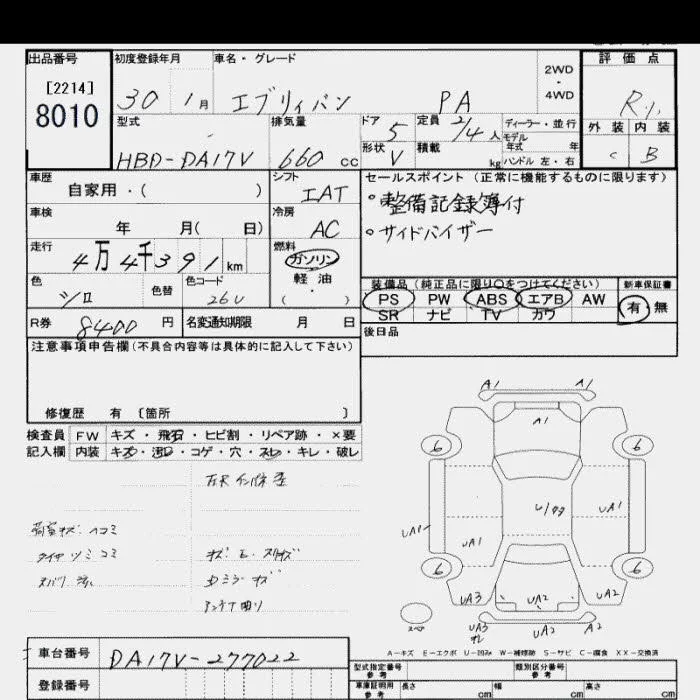 出品番号 初度登録年月 車名・グレード 2WD・4WD 評価点
[2214]
8010
30 1月 エブリィバン PA R
型式 排気量 ドア 5 定員 2/4人 ディーラー・並行
モデル年式 年
外装 内装
HBD-DA17V 660 cc 形状 V 積載 kg ハンドル 左・右 C B
車歴 自家用・( ) シフト IAT セールスポイント (正常に機能するものに限ります)
・整備記録簿付
車検 年 月( 日) 冷房 AC
・サイドバイザー
走行 4万4千391km 燃料 ガソリン
軽油
( ・ )
色 シロ 色替 色コード 26U
装備品 (純正品に限り○をつけてください) 新車保証書
PS PW ABS エアB AW 有・無
SR ナビ TV カワ
R券 8400円 名変通知期限 月 日
後日品
注意事項申告欄(不具合内容等は具体的に記入して下さい)
修復歴 有 〔箇所 〕
検査員 FW キズ・飛石・ヒビ割・リペア跡・×要
記入欄 内装 キズ・汚れ・コゲ・穴・スレ・キレ・破レ
A1 A1
A1
6 6
UA1 UA1 UA1
6 6
UA3 UA2 UA2
UA3 UA2 A2
荷室キズ・ヘコミ
タイヤツミコミ
キズ・
Dミラーキズ
アンテナ曲り
スペア
A-キズ E-エクボ U-凹み W-補修跡 S-サビ C-腐食 XX-交換済
車台番号 DA17V-277022
登録番号
型式指定番号 参考 類別区分番号 参考
車庫証明用 参考 長さ cm 幅 cm 高さ cm